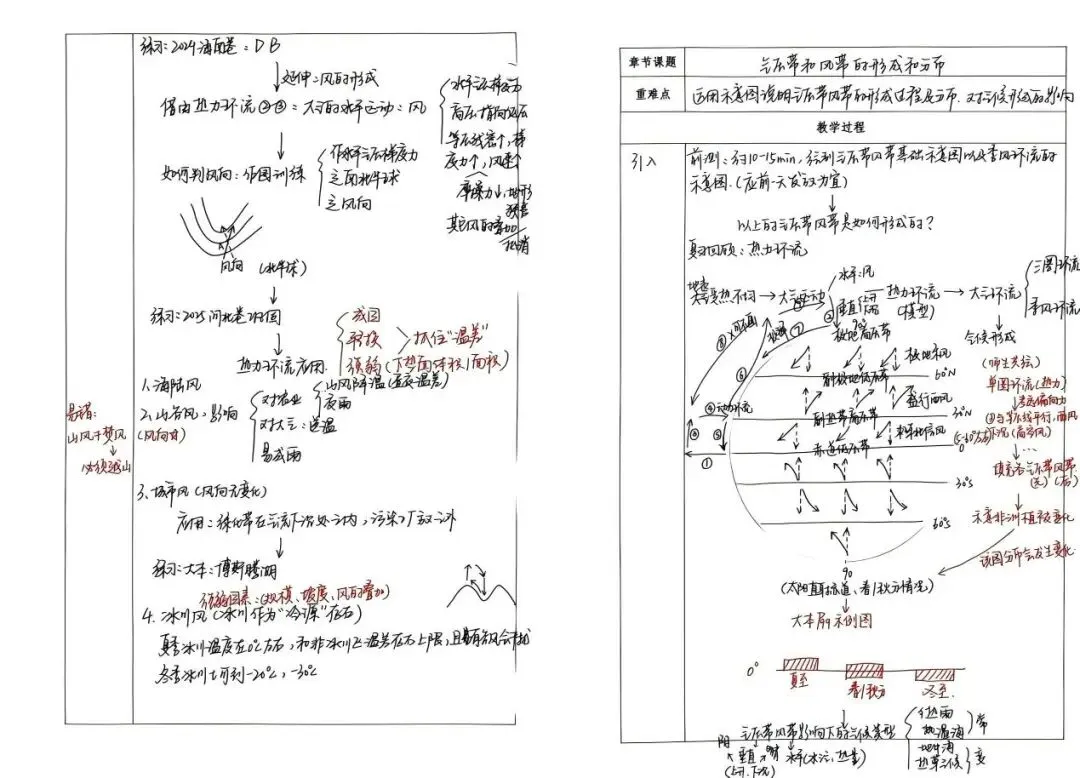 练习：2024海南卷：DB
延伸：风的形成
借由热力环流②④：大气的水平运动：风
水平气压梯度力
高压指向低压
等压线密个，梯
度力个，风速个
摩擦力↓，地形
其它风的叠加
抵消
如何判风向：作图训练
作水平气压梯度力
定南北半球
定风向
风向
（北半球）
练习：2025河北卷
热力环流应用
成因
转换
强弱（下垫面体积/面积）
抓住"温差"
1.海陆风
2.山谷风：影响
（风向日）
对农业
山风降温（昼夜温差）
夜雨
对大气：逆温
易成雨
易错：
山风于焚风
必须越山
3、城市风（风向无变化）
应用：绿化带在气流下沉处之内，污染厂放之外
练习：大本：博斯腾湖
强弱因素：（规模、坡度、风的叠加）
4.冰川风（冰川作为"冷源"存在）
夏季冰川温度在0℃左右，和非冰川区温差存在上限，且
冬季冰川可到-20℃，-30℃
章节课题
气压带和风带的形成和分布
重难点
运用示意图说明气压带风带的形成过程及分布．对气候形成的影响
教学过程
引入
前测：约10-15min，绘制气压带风带基础示意图以及季风环流的
示意图．（应前一天发放为宜）
以上的气压带风带是如何形成的？
复习回顾：热力环流
地表
受热不均→大气运动
水平：风
垂直
上升
下沉
热力环流
（模型）
→大气环流
三圈环流
季风环流
90
极地高压带
极地东风
副极地低压带
60°N
盛行西风
副热带高压带
30°N
东北信风
赤道低压带
0
30°S
60°S
90
①
②
③
④动力环流
⑤
⑥
⑦
⑧
气候形成
（师生共绘）
单圈环流（热力）
↓考虑偏向力
与等压线平行，西风
下沉（高空风）
…
填充各气压带风带
（先）（后）
示意非洲植被变化
该图分布会发生变化
（太阳直射赤道，春/秋分情况）
大本示例图
0°
夏至
春/秋分
冬至
气压带风带影响下的气候类型
垂直
（上升、下沉）
水平（水汽、热量）
热雨
温海
常
地中海
热草气候
变